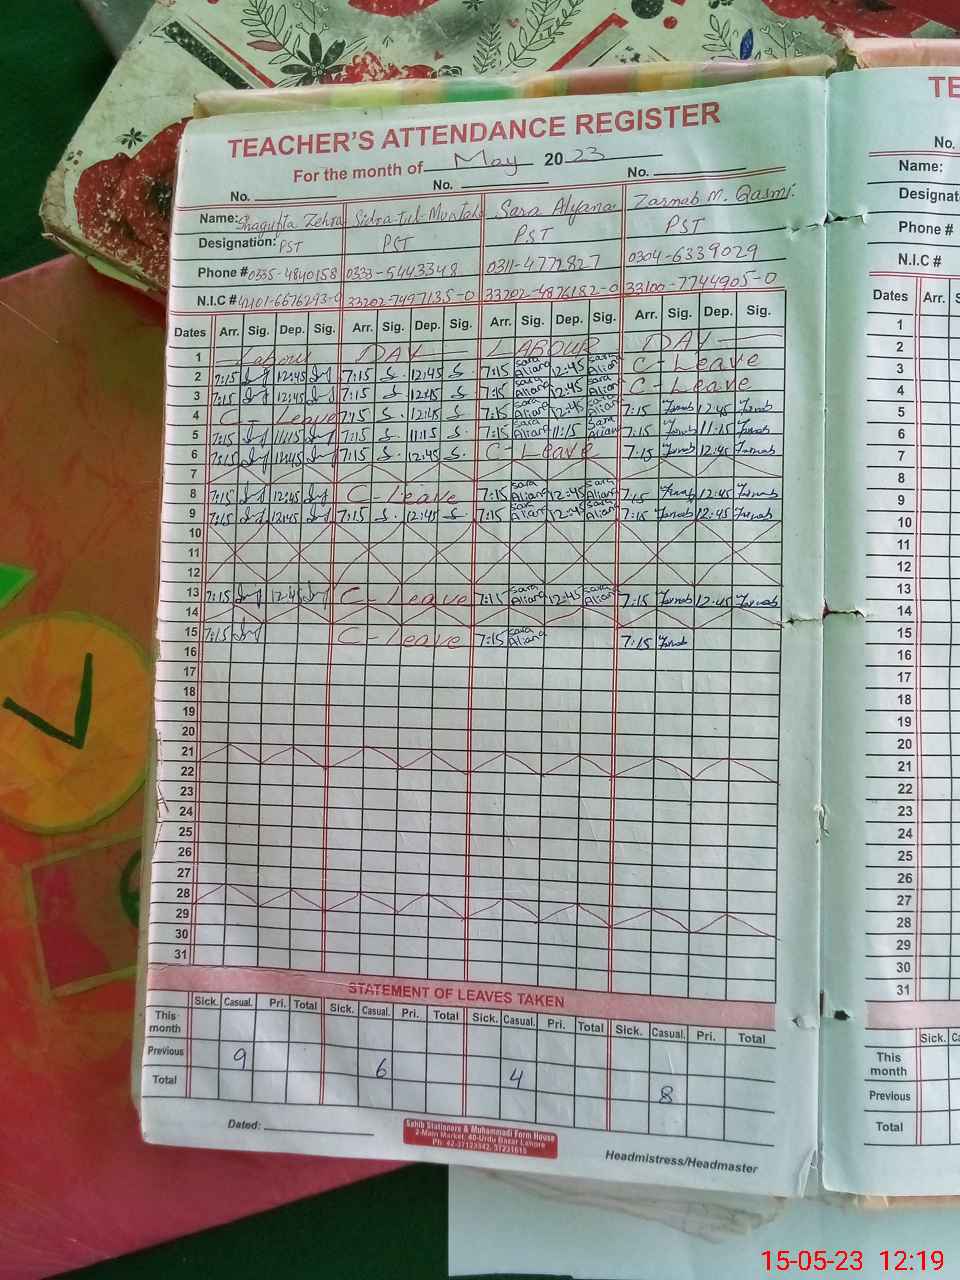 TEACHER'S ATTENDANCE REGISTER
For the month of May 2023
No. No. No.
Name: Shagufta Zehra Sidra-tul-Muntaha Sara Alyana Zarnab M. Qasmi
Designation: PST PST PST PST
Phone # 0335-4840158 0333-5443348 0311-4772827 0304-6339029
N.I.C # 42101-6676293-0 33202-7497135-0 33202-4876182-0 33100-7744905-0
Dates Arr. Sig. Dep. Sig. Arr. Sig. Dep. Sig. Arr. Sig. Dep. Sig. Arr. Sig. Dep. Sig.
1 Labour DAY LABOUR DAY
2 7:15 12:45 7:15 S. 12:45 S. 7:15 Sara Aliana 12:45 Sara Aliana C-Leave
3 7:15 12:45 7:15 S 12:45 S. 7:15 Sara Aliana 12:45 Sara Aliana C-Leave
4 C-Leave 7:15 S. 12:45 S. 7:15 Sara Aliana 12:45 Sara Aliana 7:15 Zarnab 12:45 Zarnab
5 7:15 11:15 7:15 S. 11:15 S. 7:15 Sara Aliana 11:15 Sara Aliana 7:15 Zarnab 11:15 Zarnab
6 7:15 12:45 7:15 S. 12:45 S. C-Leave 7:15 Zarnab 12:45 Zarnab
7
8 7:15 12:45 C-Leave 7:15 Sara Aliana 12:45 Sara Aliana 7:15 Zarnab 12:45 Zarnab
9 7:15 12:45 7:15 S. 12:45 S. 7:15 Sara Aliana 12:45 Sara Aliana 7:15 Zarnab 12:45 Zarnab
10
11
12
13 7:15 12:45 C-Leave 7:15 Sara Aliana 12:45 Sara Aliana 7:15 Zarnab 12:45 Zarnab
14
15 7:15 C-Leave 7:15 Sara Aliana 7:15 Zarnab
16
17
18
19
20
21
22
23
24
25
26
27
28
29
30
31
STATEMENT OF LEAVES TAKEN
Sick. Casual. Pri. Total Sick. Casual. Pri. Total Sick. Casual. Pri. Total Sick. Casual. Pri. Total
This month
Previous 9 6 4 8
Total
Dated:
Sahib Stationers & Muhammadi Form House
2-Main Market, 40-Urdu Bazar Lahore
Ph: 42-37123342, 37231615
Headmistress/Headmaster
TE
No.
Name:
Designat
Phone #
N.I.C #
Dates Arr. S
1
2
3
4
5
6
7
8
9
10
11
12
13
14
15
16
17
18
19
20
21
22
23
24
25
26
27
28
29
30
31
Sick. Ca
This month
Previous
Total
15-05-23 12:19